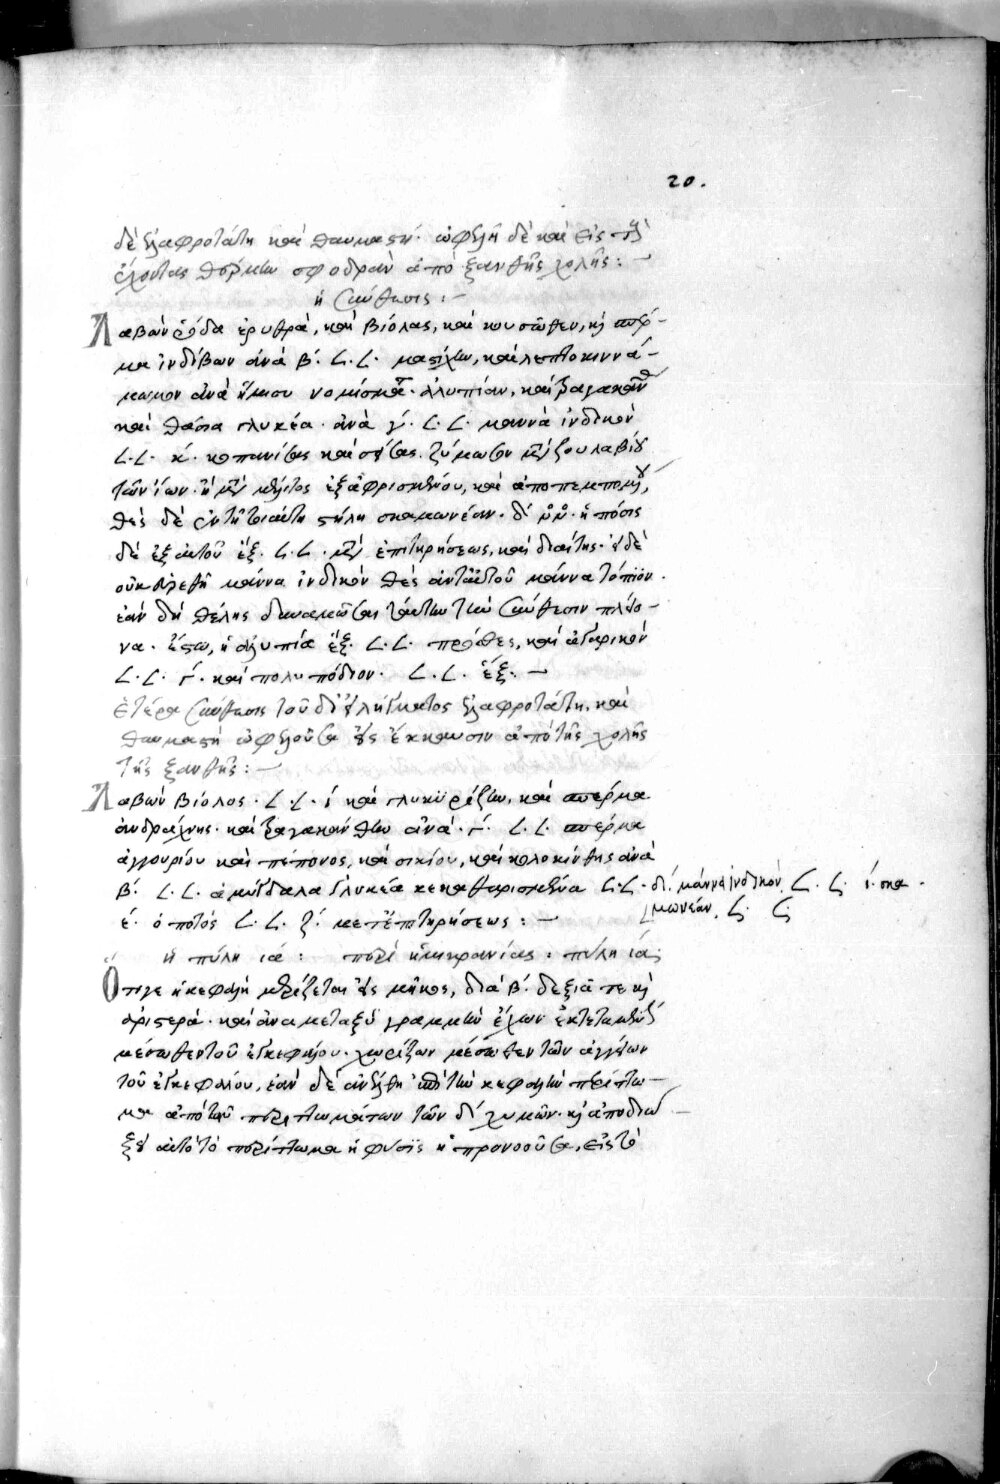 20.
δὲ ἐλαφροτάτη καὶ θαυμαστή· ὠφελεῖ δὲ καὶ εἰς τοὺς
ἔχοντας θέρμην σφοδρὰν ἀπὸ ξανθῆς χολῆς: –
ἡ σύνθεσις: –
Λαβὼν ῥόδα ἐρυθρὰ, καὶ βιόλας, καὶ κουσοῦθεν, καὶ σπέρ-
μα ἰνδίβων ἀνὰ β´. ʹ. ʹ. μαστίχην, καὶ λεπτοκιννά-
μωμον ἀνὰ ἥμισυ νομίσματος· ἀλυπίαν, καὶ τραγακάνθην
καὶ θάσια γλυκέα· ἀνὰ γ´. ʹ. ʹ. μαννὰ ἰνδικὸν
ʹ. ʹ. κ´. κοπανίσας καὶ σείσας. ζύμωσον μετὰ ζουλαβίου
τῶν ἴων· ἢ μετὰ μέλιτος ἐξαφρισμένου, καὶ ἀποπεμπομένου,
θὲς δὲ ἐν τῇ τοιαύτῃ στήλῃ σκαμωνέαν· δ´ ἡ πόσις
δὲ ἐξ αὐτοῦ ἕξ. ʹ. ʹ. μετὰ ἐπιτηρήσεως, καὶ διαίτης· εἰ δὲ
οὐκ εὑρεθῇ μάννα ἰνδικὸν θὲς ἀντ' αὐτοῦ μάννα τόπιον.
ἐὰν δὴ θέλῃς δυναμῶσαι ταύτην τὴν σύνθεσιν πλέο-
να· ἔστω, ἡ ἀλυπία ἕξ. ʹ. ʹ. πρόσθες, καὶ ἀγαρικὸν
ʹ. ʹ. γ´. καὶ πολυπόδιον. ʹ. ʹ. ἕξ. –
Ἑτέρα σύνθεσις τοῦ δι' ἐλήγματος ἐλαφροτάτη, καὶ
θαυμαστὴ ὠφελοῦσα εἰς ἔκκαυσιν ἀπὸ τῆς χολῆς
τῆς ξανθῆς: –
Λαβὼν βιόλας· ʹ. ʹ. ί καὶ γλυκύριζαν, καὶ σπέρμα
ἀνδράχνης· καὶ τραγακάνθην ἀνὰ· γ´. ʹ. ʹ. σπέρμα
ἀγγουρίου καὶ πέπονος, καὶ σικύου, καὶ κολοκίνθης ἀνὰ
β´. ʹ. ʹ. ἀμύγδαλα γλυκέα κεκαθαρισμένα ʹ. ʹ. δι´. μάννα ἰνδικὸν, ʹ. ʹ. ί. σκα-
μωνέαν, ʹ. ʹ.
έ. ὁ ποτὸς ʹ. ʹ. ζ´. μετ' ἐπιτηρήσεως: –
ἡ πύλη ια´: περὶ ἡμικρανίας: πύλη ια´:
Ὅτι γε ἡ κεφαλὴ μερίζεται εἰς μῆκος, διὰ β´. δεξιά τε καὶ
ἀριστερά· καὶ ἀναμεταξὺ γραμμὴν ἔχων ἐκτεταμένην
μέσωθεν τοῦ ἐγκεφάλου. χωρίζων μέσωθεν τῶν ἀγγείων
τοῦ ἐγκεφάλου, ἐὰν δὲ ἀνέλθῃ ἐπὶ τὴν κεφαλὴν περίττω-
μα ἀπὸ τῶν περιττωμάτων τῶν δ´ χυμῶν· καὶ ἀποδιώ-
ξει αὐτὸ τὸ περίττωμα ἡ φύσις ἡ προνοοῦσα, εἰς τὸ